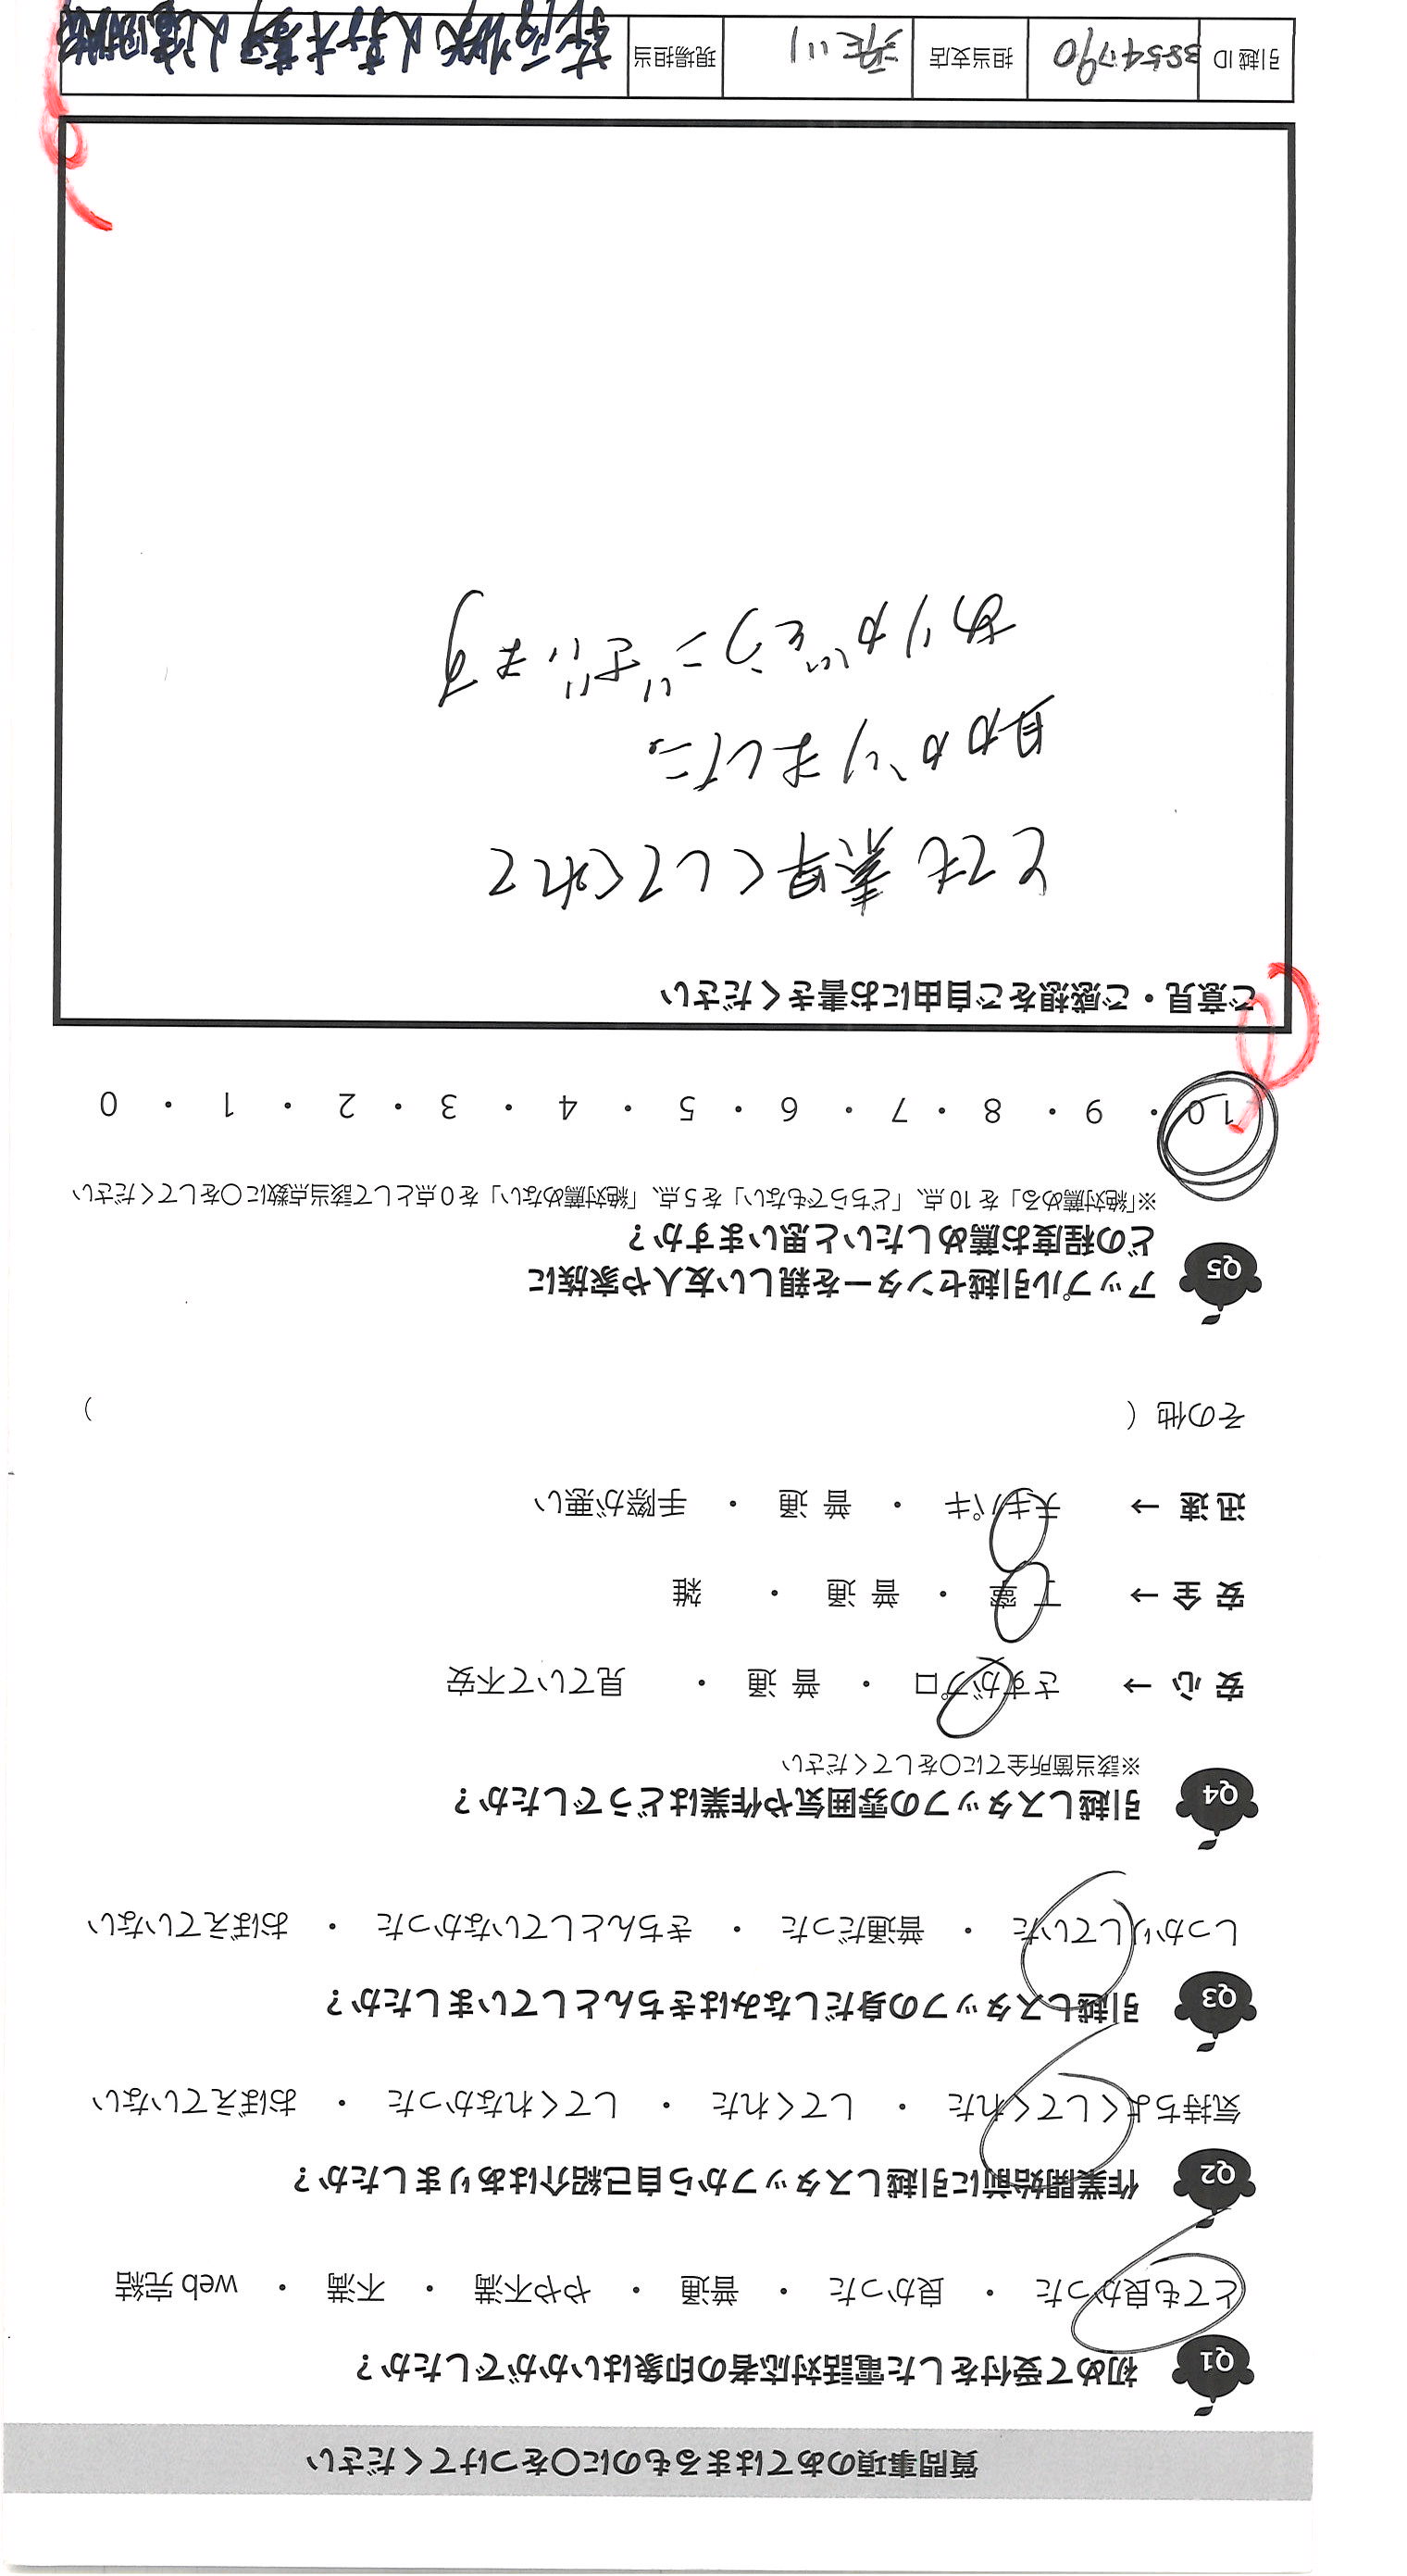 質問事項のあてはまるものに〇をつけてください
Q1 初めて受付をした電話対応者の印象はいかがでしたか？
とても良かった ・ 良かった ・ 普通 ・ やや不満 ・ 不満 ・ web 完結
Q2 作業開始前に引越しスタッフから自己紹介はありましたか？
気持ちよくしてくれた ・ してくれた ・ してくれなかった ・ おぼえていない
Q3 引越しスタッフの身だしなみはきちんとしていましたか？
しっかりしていた ・ 普通だった ・ きちんとしていなかった ・ おぼえていない
Q4 引越しスタッフの雰囲気や作業はどうでしたか？
※該当箇所全てに〇をしてください
安 心 → さすがプロ ・ 普 通 ・ 見ていて不安
安 全 → 丁 寧 ・ 普 通 ・ 雑
迅 速 → テキパキ ・ 普 通 ・ 手際が悪い
その他（ ）
Q5 アップル引越センターを親しい友人や家族に
どの程度お薦めしたいと思いますか？
※「絶対薦める」を 10 点、「どちらでもない」を 5 点、「絶対薦めない」を 0 点として該当点数に〇をしてください
10 ・ 9 ・ 8 ・ 7 ・ 6 ・ 5 ・ 4 ・ 3 ・ 2 ・ 1 ・ 0
ご意見・ご感想をご自由にお書きください
とても素早くしてくれて
助かりました。
ありがとうございます
引越 ID 3854790 担当支店 川 現場担当